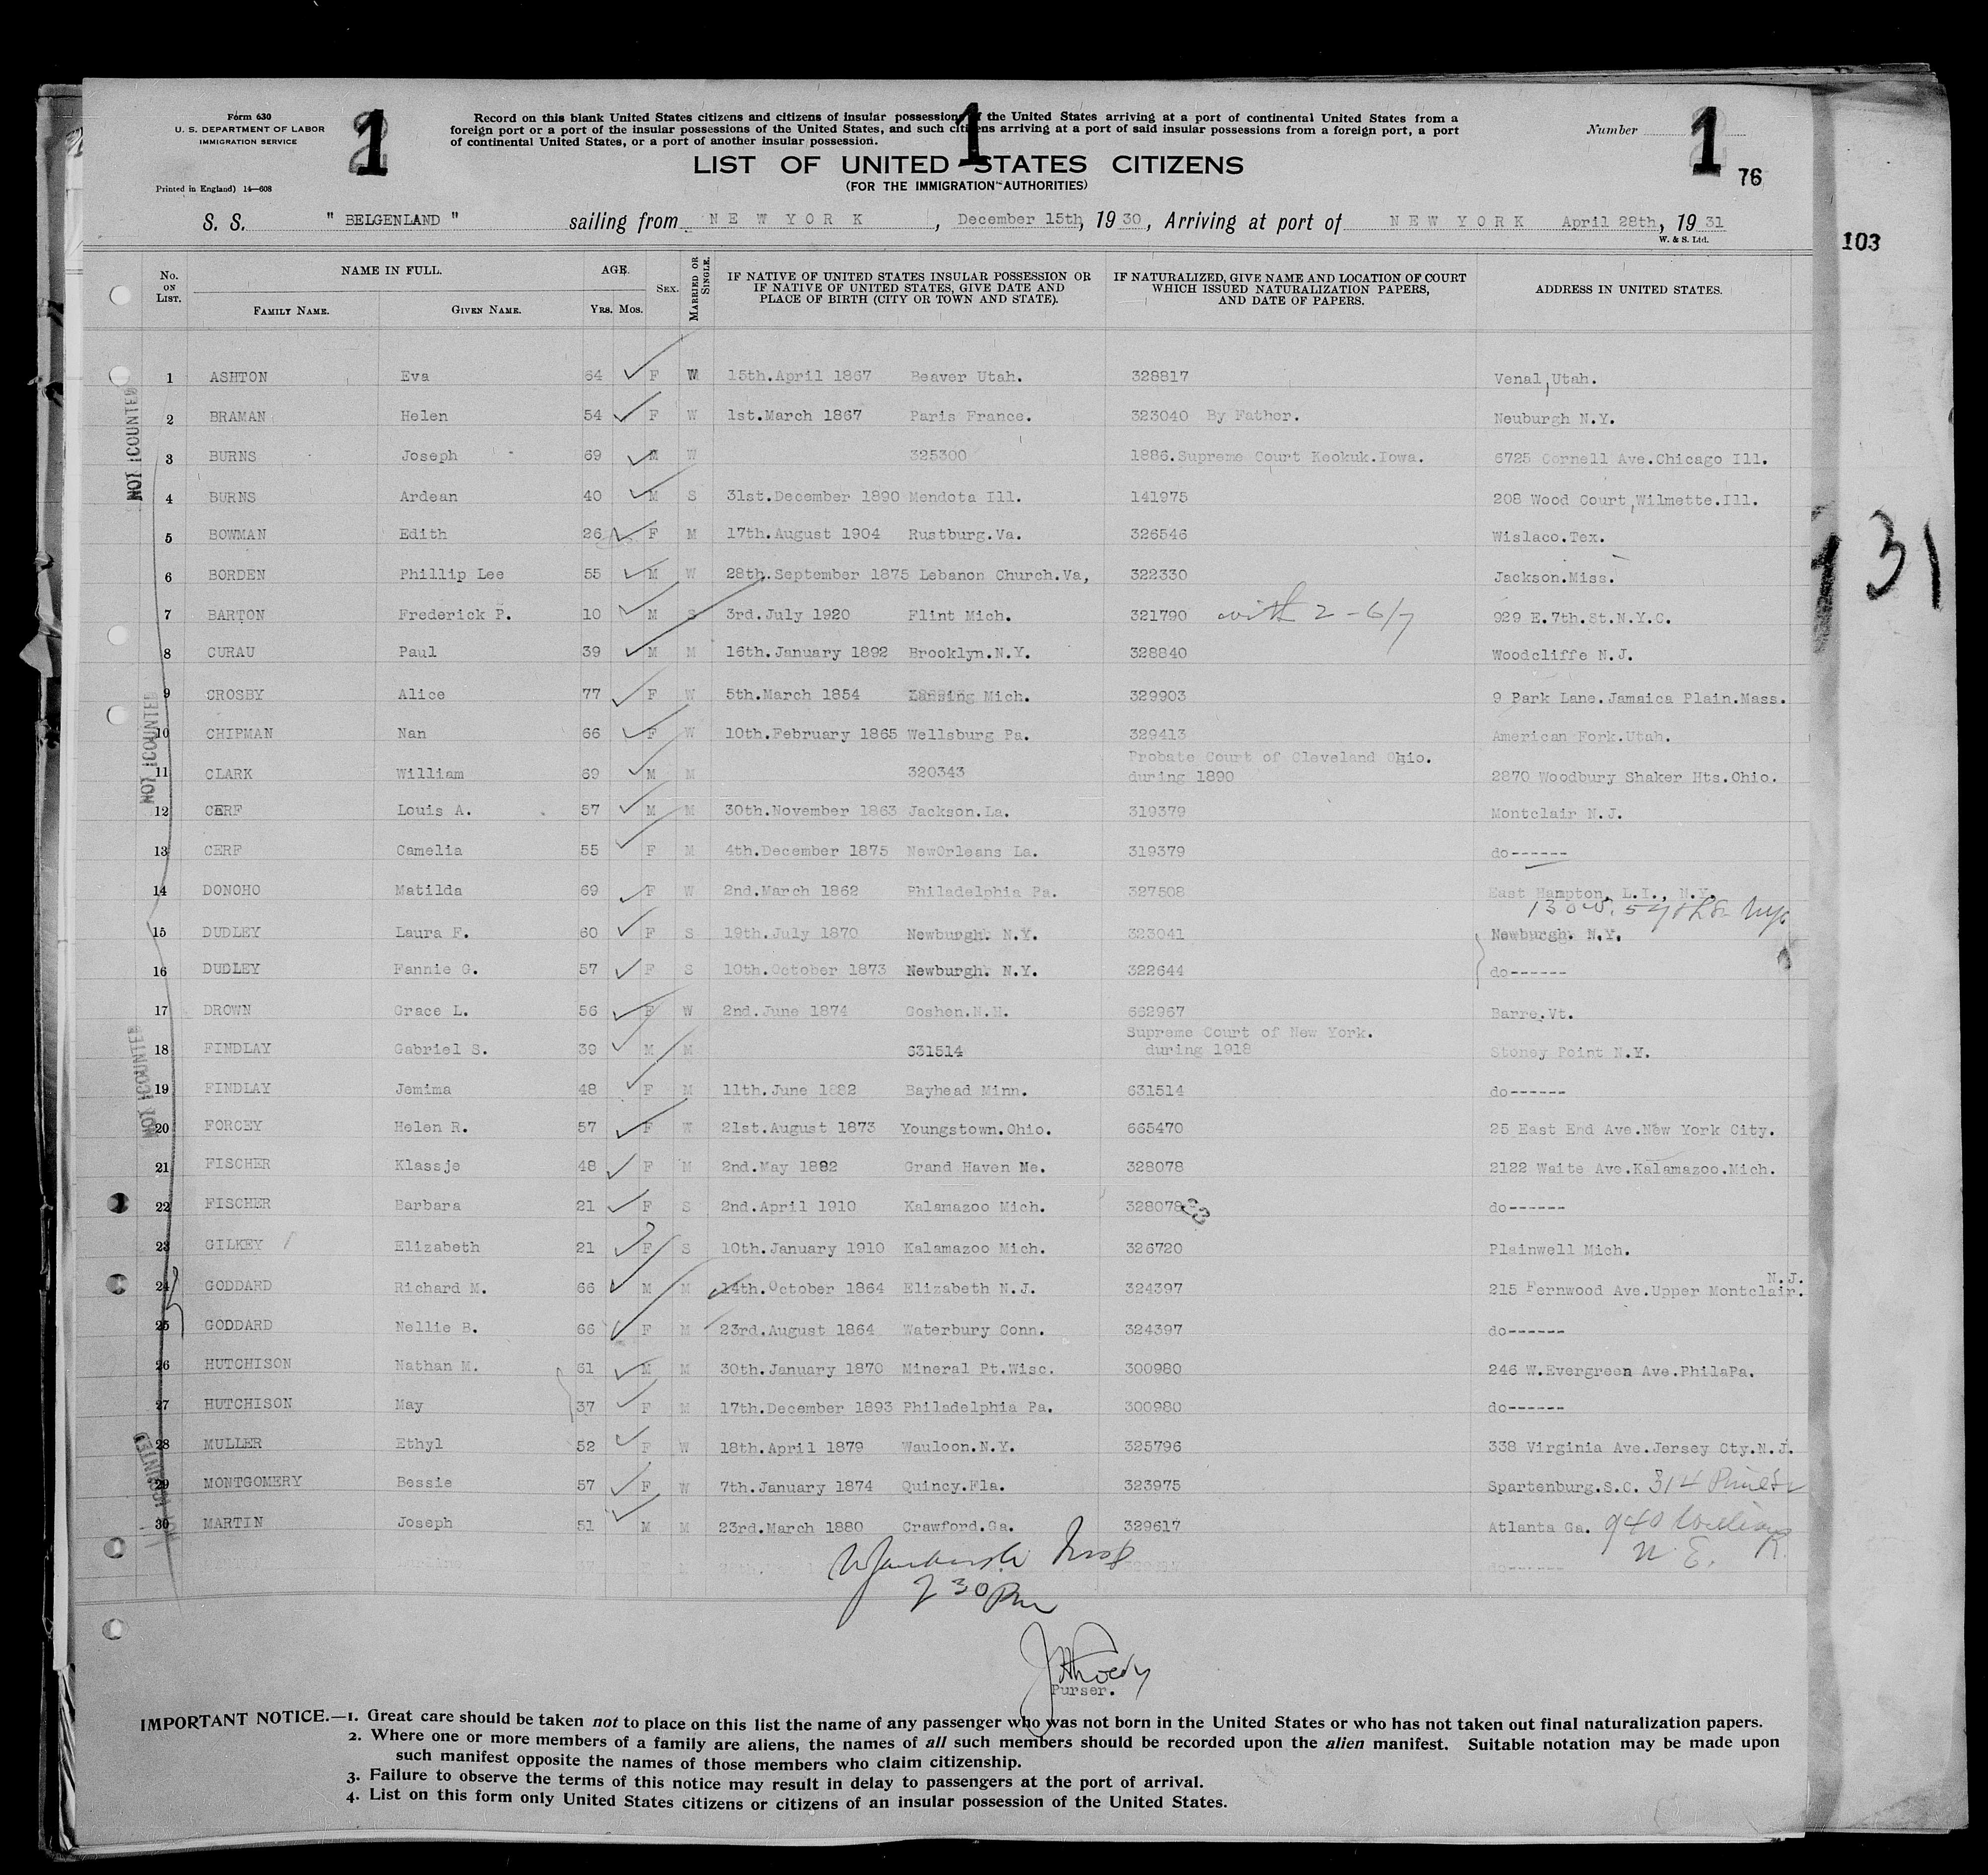 Form 630
U. S. DEPARTMENT OF LABOR
IMMIGRATION SERVICE
Printed in England) 14—608
1
Record on this blank United States citizens and citizens of insular possessions of the United States arriving at a port of continental United States from a
foreign port or a port of the insular possessions of the United States, and such citizens arriving at a port of said insular possessions from a foreign port, a port
of continental United States, or a port of another insular possession.
1
Number
1
76
LIST OF UNITED STATES CITIZENS
(FOR THE IMMIGRATION AUTHORITIES)
S. S. " BELGENLAND " sailing from NEW YORK, December 15th, 1930, Arriving at port of NEW YORK April 28th, 1931
W. & S. Ltd.
103
131
No. ON LIST. NAME IN FULL. FAMILY NAME. GIVEN NAME. AGE. YRS. MOS. SEX. MARRIED OR SINGLE. IF NATIVE OF UNITED STATES INSULAR POSSESSION OR IF NATIVE OF UNITED STATES, GIVE DATE AND PLACE OF BIRTH (CITY OR TOWN AND STATE). IF NATURALIZED, GIVE NAME AND LOCATION OF COURT WHICH ISSUED NATURALIZATION PAPERS, AND DATE OF PAPERS. ADDRESS IN UNITED STATES.
1 ASHTON Eva 64 F W 15th.April 1867 Beaver Utah. 328817 Venal,Utah.
2 BRAMAN Helen 54 F W 1st.March 1867 Paris France. 323040 By Father. Neuburgh N.Y.
3 BURNS Joseph 69 M W 325300 1886.Supreme Court Keokuk.Iowa. 6725 Cornell Ave.Chicago Ill.
4 BURNS Ardean 40 M S 31st.December 1890 Mendota Ill. 141975 208 Wood Court,Wilmette.Ill.
5 BOWMAN Edith 26 F M 17th.August 1904 Rustburg.Va. 326546 Wislaco.Tex.
6 BORDEN Phillip Lee 55 M W 28th.September 1875 Lebanon Church.Va, 322330 Jackson.Miss.
7 BARTON Frederick P. 10 M S 3rd.July 1920 Flint Mich. 321790 with 2-6/7 929 E.7th.St.N.Y.C.
8 CURAU Paul 39 M M 16th.January 1892 Brooklyn.N.Y. 328840 Woodcliffe N.J.
9 CROSBY Alice 77 F W 5th.March 1854 Lansing Mich. 329903 9 Park Lane.Jamaica Plain.Mass.
10 CHIPMAN Nan 66 F W 10th.February 1865 Wellsburg Pa. 329413 American Fork.Utah.
11 CLARK William 69 M M 320343 Probate Court of Cleveland Ohio. during 1890 2870 Woodbury Shaker Hts.Ohio.
12 CERF Louis A. 57 M M 30th.November 1863 Jackson.La. 319379 Montclair N.J.
13 CERF Camelia 55 F M 4th.December 1875 NewOrleans La. 319379 do------
14 DONOHO Matilda 69 F W 2nd.March 1862 Philadelphia Pa. 327508 East Hampton, L.I., N.Y.
130 W. 57th St NYC
15 DUDLEY Laura F. 60 F S 19th.July 1870 Newburgh. N.Y. 323041 Newburgh. N.Y.
16 DUDLEY Fannie G. 57 F S 10th.October 1873 Newburgh. N.Y. 322644 do------
17 DROWN Grace L. 56 F W 2nd.June 1874 Goshen.N.H. 662967 Barre.Vt.
18 FINDLAY Gabriel S. 39 M M 631514 Supreme Court of New York. during 1918 Stoney Point N.Y.
19 FINDLAY Jemima 48 F M 11th.June 1882 Bayhead Minn. 631514 do------
20 FORCEY Helen R. 57 F W 21st.August 1873 Youngstown.Ohio. 665470 25 East End Ave.New York City.
21 FISCHER Klassje 48 F M 2nd.May 1882 Grand Haven Me. 328078 2122 Waite Ave.Kalamazoo.Mich.
22 FISCHER Barbara 21 F S 2nd.April 1910 Kalamazoo Mich. 328078 do------
23 GILKEY Elizabeth 21 F S 10th.January 1910 Kalamazoo Mich. 326720 Plainwell Mich.
24 GODDARD Richard M. 66 M M 14th.October 1864 Elizabeth N.J. 324397 215 Fernwood Ave.Upper Montclair. N.J.
25 GODDARD Nellie B. 66 F M 23rd.August 1864 Waterbury Conn. 324397 do------
26 HUTCHISON Nathan M. 61 M M 30th.January 1870 Mineral Pt.Wisc. 300980 246 W.Evergreen Ave.PhilaPa.
27 HUTCHISON May 37 F M 17th.December 1893 Philadelphia Pa. 300980 do------
28 MULLER Ethyl 52 F W 18th.April 1879 Wauloon.N.Y. 325796 338 Virginia Ave.Jersey Cty.N.J.
29 MONTGOMERY Bessie 57 F W 7th.January 1874 Quincy.Fla. 323975 Spartenburg.S.C. 314 Pine St
30 MARTIN Joseph 51 M M 23rd.March 1880 Crawford.Ga. 329617 Atlanta Ga. 940
N.E.
do------
730 Pm
Purser.
NOT COUNTED
NOT COUNTED
NOT COUNTED
NOT COUNTED
IMPORTANT NOTICE.—1. Great care should be taken not to place on this list the name of any passenger who was not born in the United States or who has not taken out final naturalization papers.
2. Where one or more members of a family are aliens, the names of all such members should be recorded upon the alien manifest. Suitable notation may be made upon
such manifest opposite the names of those members who claim citizenship.
3. Failure to observe the terms of this notice may result in delay to passengers at the port of arrival.
4. List on this form only United States citizens or citizens of an insular possession of the United States.